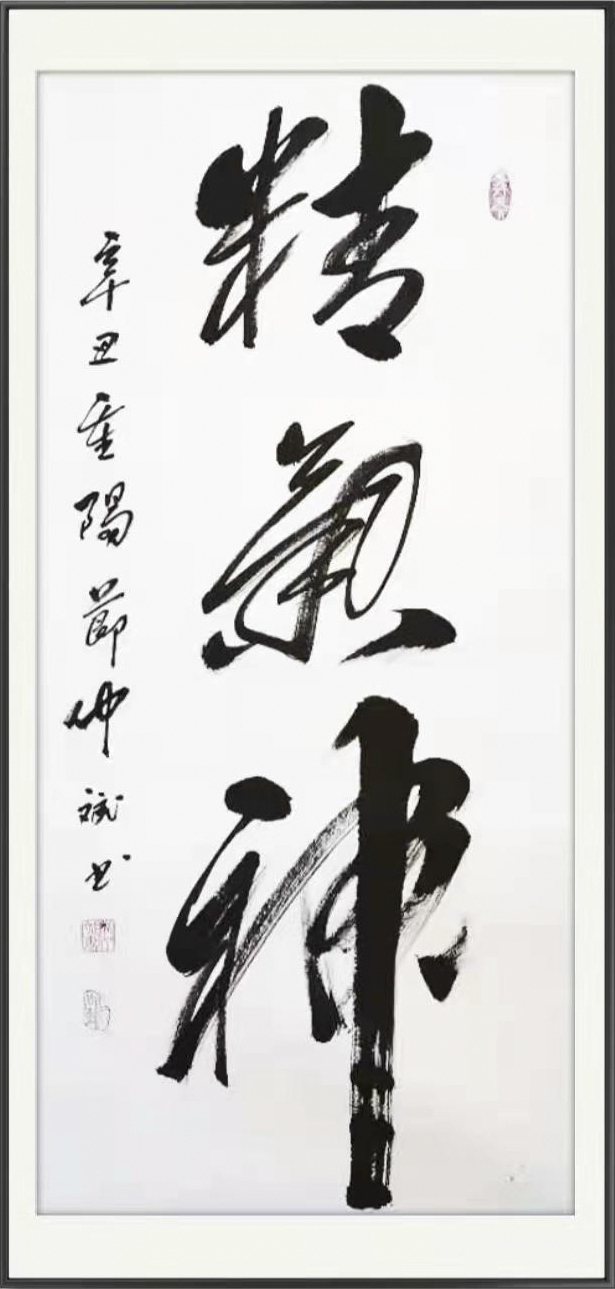 精氣神
辛丑重陽節仲斌书